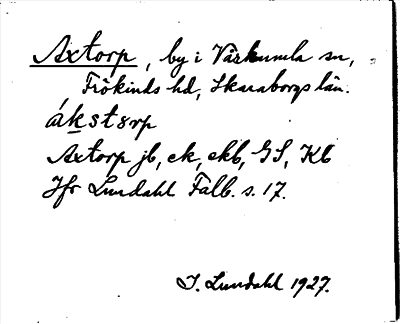 Axtorp, by i Vårkumla sn,
Frökinds hd, Skaraborgs län.
ákstərp
Axtorp jb, ek, ekb, GS, Kb
Jfr Lundahl Falb. s. 17.
I. Lundahl 1927.